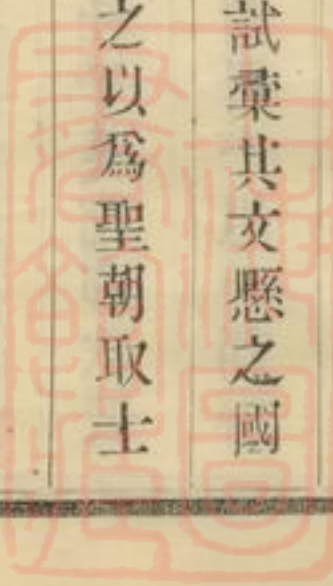 試彚其文懸之國
之以爲聖朝取士